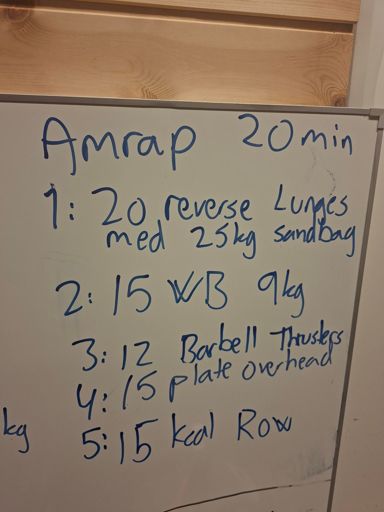 Amrap 20min
1: 20 reverse Lunges
med 25kg sandbag
2: 15 WB 9kg
3: 12 Barbell Thrusters
4: 15 plate overhead
kg
5: 15 kcal Row